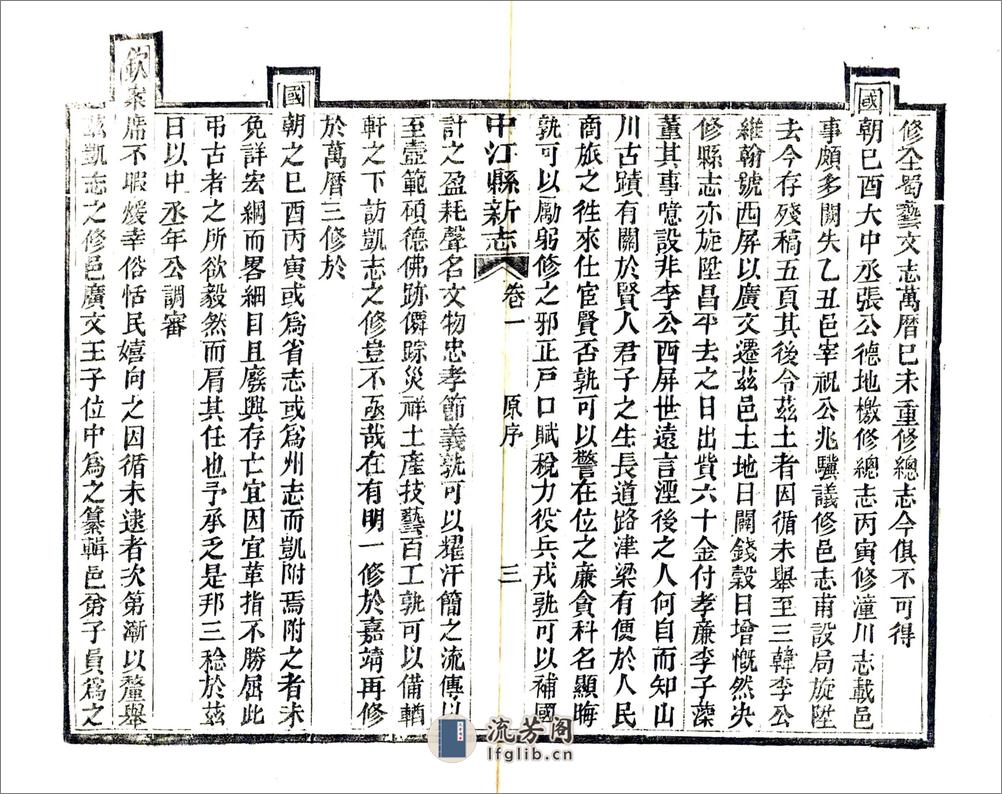 修全蜀藝文志萬厯巳未重修總志今俱不可得
國朝巳酉大中丞張公德地檄修總志丙寅修潼川志載邑
事頗多闕失乙丑邑宰祝公兆驥議修邑志甫設局旋陞
去今存殘稿五頁其後令茲土者因循未舉至三韓李公
維翰號西屏以廣文遷茲邑土地日闢錢穀日增慨然決
修縣志亦旋陞昌平去之日出貲六十金付孝廉李子藻
董其事噫設非李公西屏世遠言湮後之人何自而知山
川古蹟有關於賢人君子之生長道路津梁有便於人民
商旅之徃來仕宦賢否孰可以警在位之廉貪科名顯晦
孰可以勵躬修之邪正戸口賦稅力役兵戎孰可以補國
中江縣新志 卷一 原序 三
計之盈耗聲名文物忠孝節義孰可以耀汗簡之流傳以
至壼範碩德佛跡僊踪災祥土產技藝百工孰可以備輶
軒之下訪凱志之修豈不亟哉在有明一修於嘉靖再修
於萬厯三修於
國朝之巳酉丙寅或爲省志或爲州志而凱附焉附之者未
免詳宏綱而畧細目且廢興存亡宜因宜革指不勝屈此
弔古者之所欲毅然而肩其任也予承乏是邦三稔於茲
日以中丞年公調審
欽案席不暇煖幸俗恬民嬉向之因循未逮者次第漸以釐舉
茲凱志之修邑廣文王子位中爲之纂輯邑弟子員爲之
流芳阁
lfglib.cn